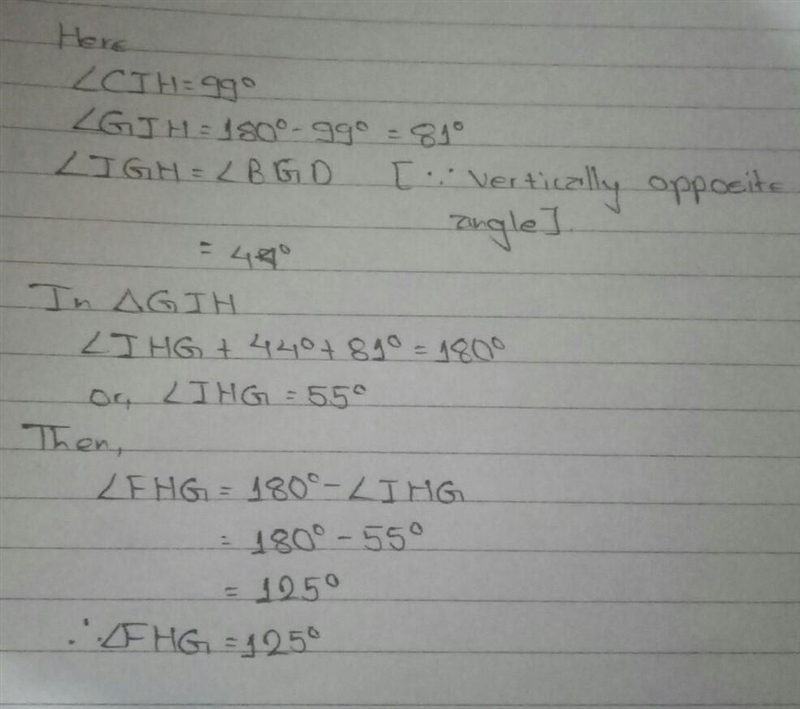 Here
∠CIH = 99°
∠GIH = 180° - 99° = 81°
∠IGH = ∠BGD [∵ vertically opposite
angle].
= 44°
In △GIH
∠IHG + 44° + 81° = 180°
or, ∠IHG = 55°
Then,
∠FHG = 180° - ∠IHG
= 180° - 55°
= 125°
∴ ∠FHG = 125°